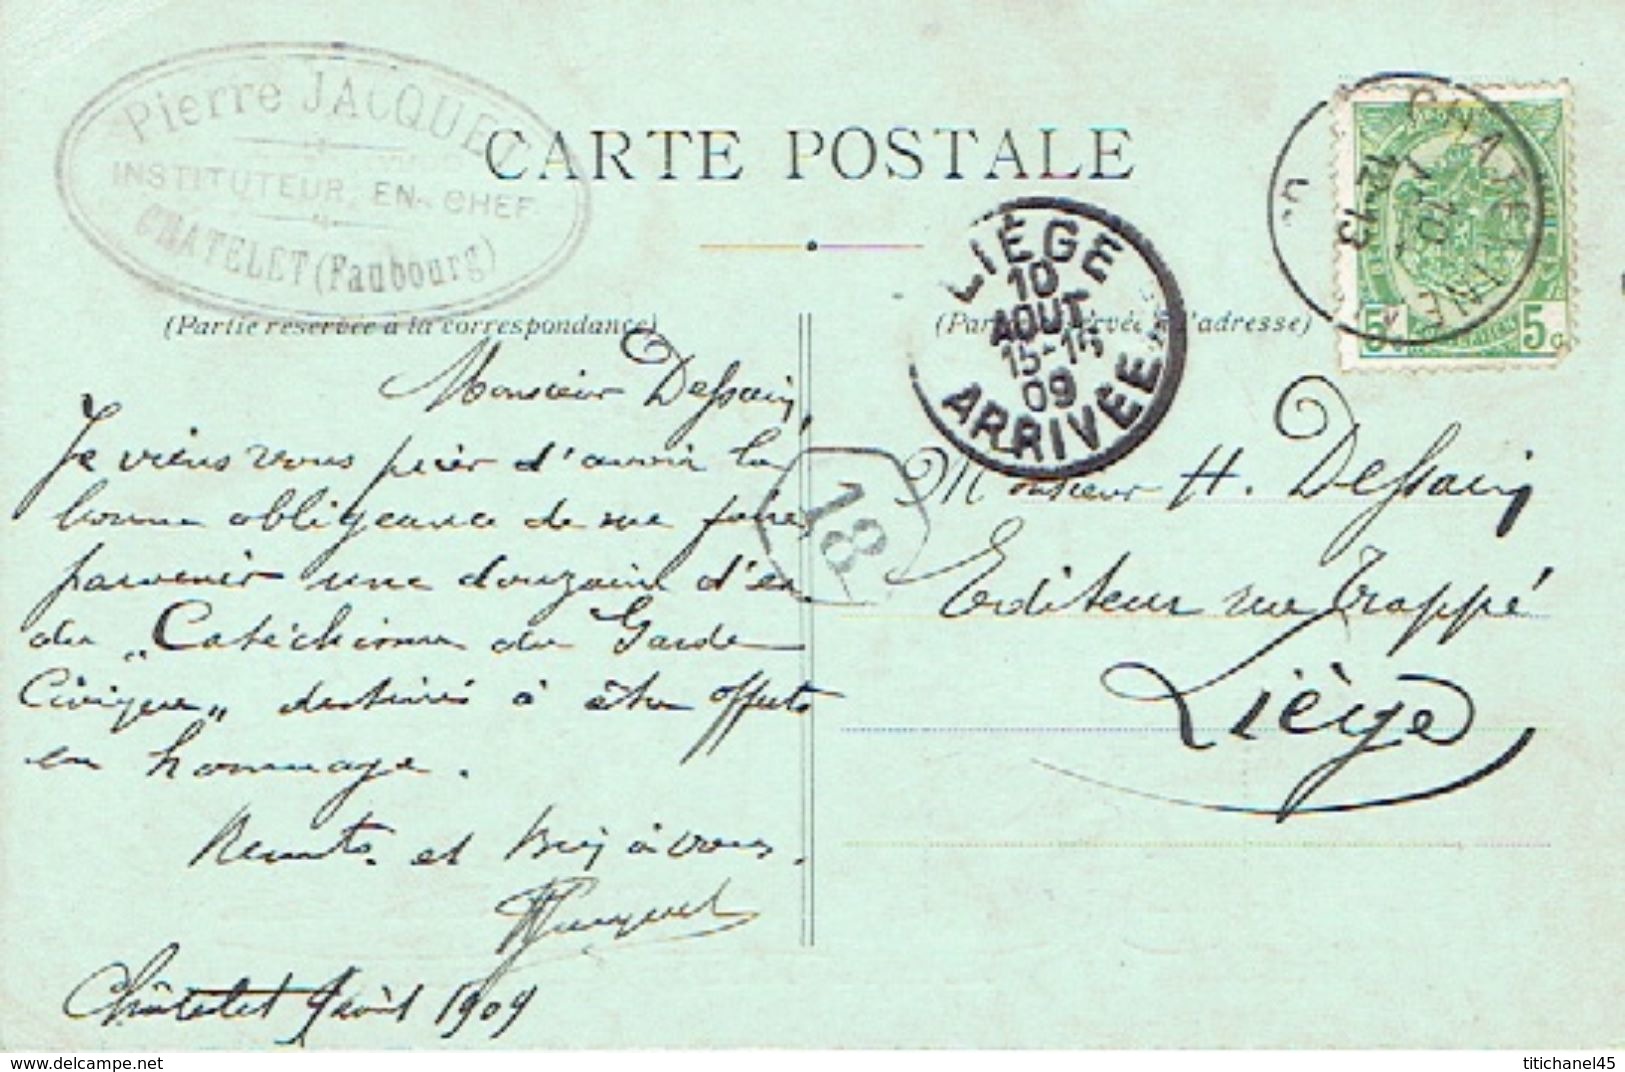 Pierre JACQUET
INSTITUTEUR EN CHEF
CHATELET (Faubourg)
CARTE POSTALE
LIÈGE
10
AOUT
15-16
09
ARRIVÉE
5 c 5 c
(Partie réservée à la correspondance)
(Partie réservée à l'adresse)
Monsieur Dessain,
Je viens vous prier d'avoir la
bonne obligeance de me faire
parvenir une douzaine d'ex
du „Catéchisme du Garde
Civique„ destinés à être offerts
en hommage.
Remts. et bien à vous.
Jacquet
Châtelet 9 août 1909
18
Monsieur H. Dessain
Editeur rue Trappé
Liège
delcampe.net
titichanel45